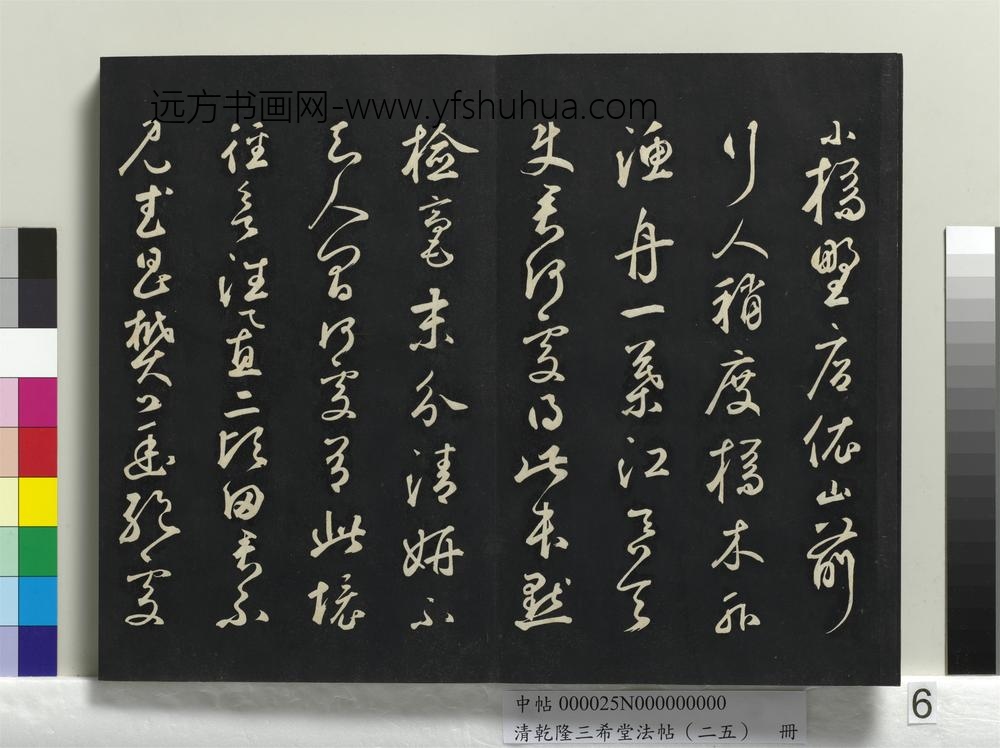 远方书画网-www.yfshuhua.com
小橋野店依山前
行人稍度橋木外
漁舟一葉江吞天
使君何處得此本點
檢毫末分清妍不
知人間何處有此境
徑欲往置二頃田君不
見武昌樊口幽絕處
中帖 000025N000000000
清乾隆三希堂法帖（二五） 冊
6